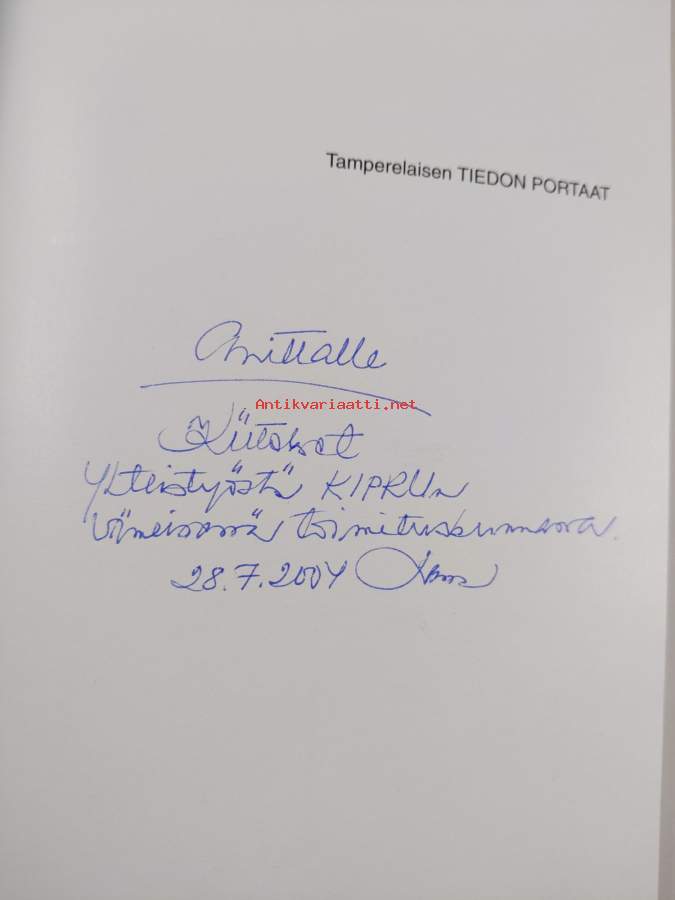 Tamperelaisen TIEDON PORTAAT
Anittalle
Antikvariaatti.net
Kiitokset
Yhteistyöstä KIPRUn
viimeisessä toimituskunnassa.
28.7.2004